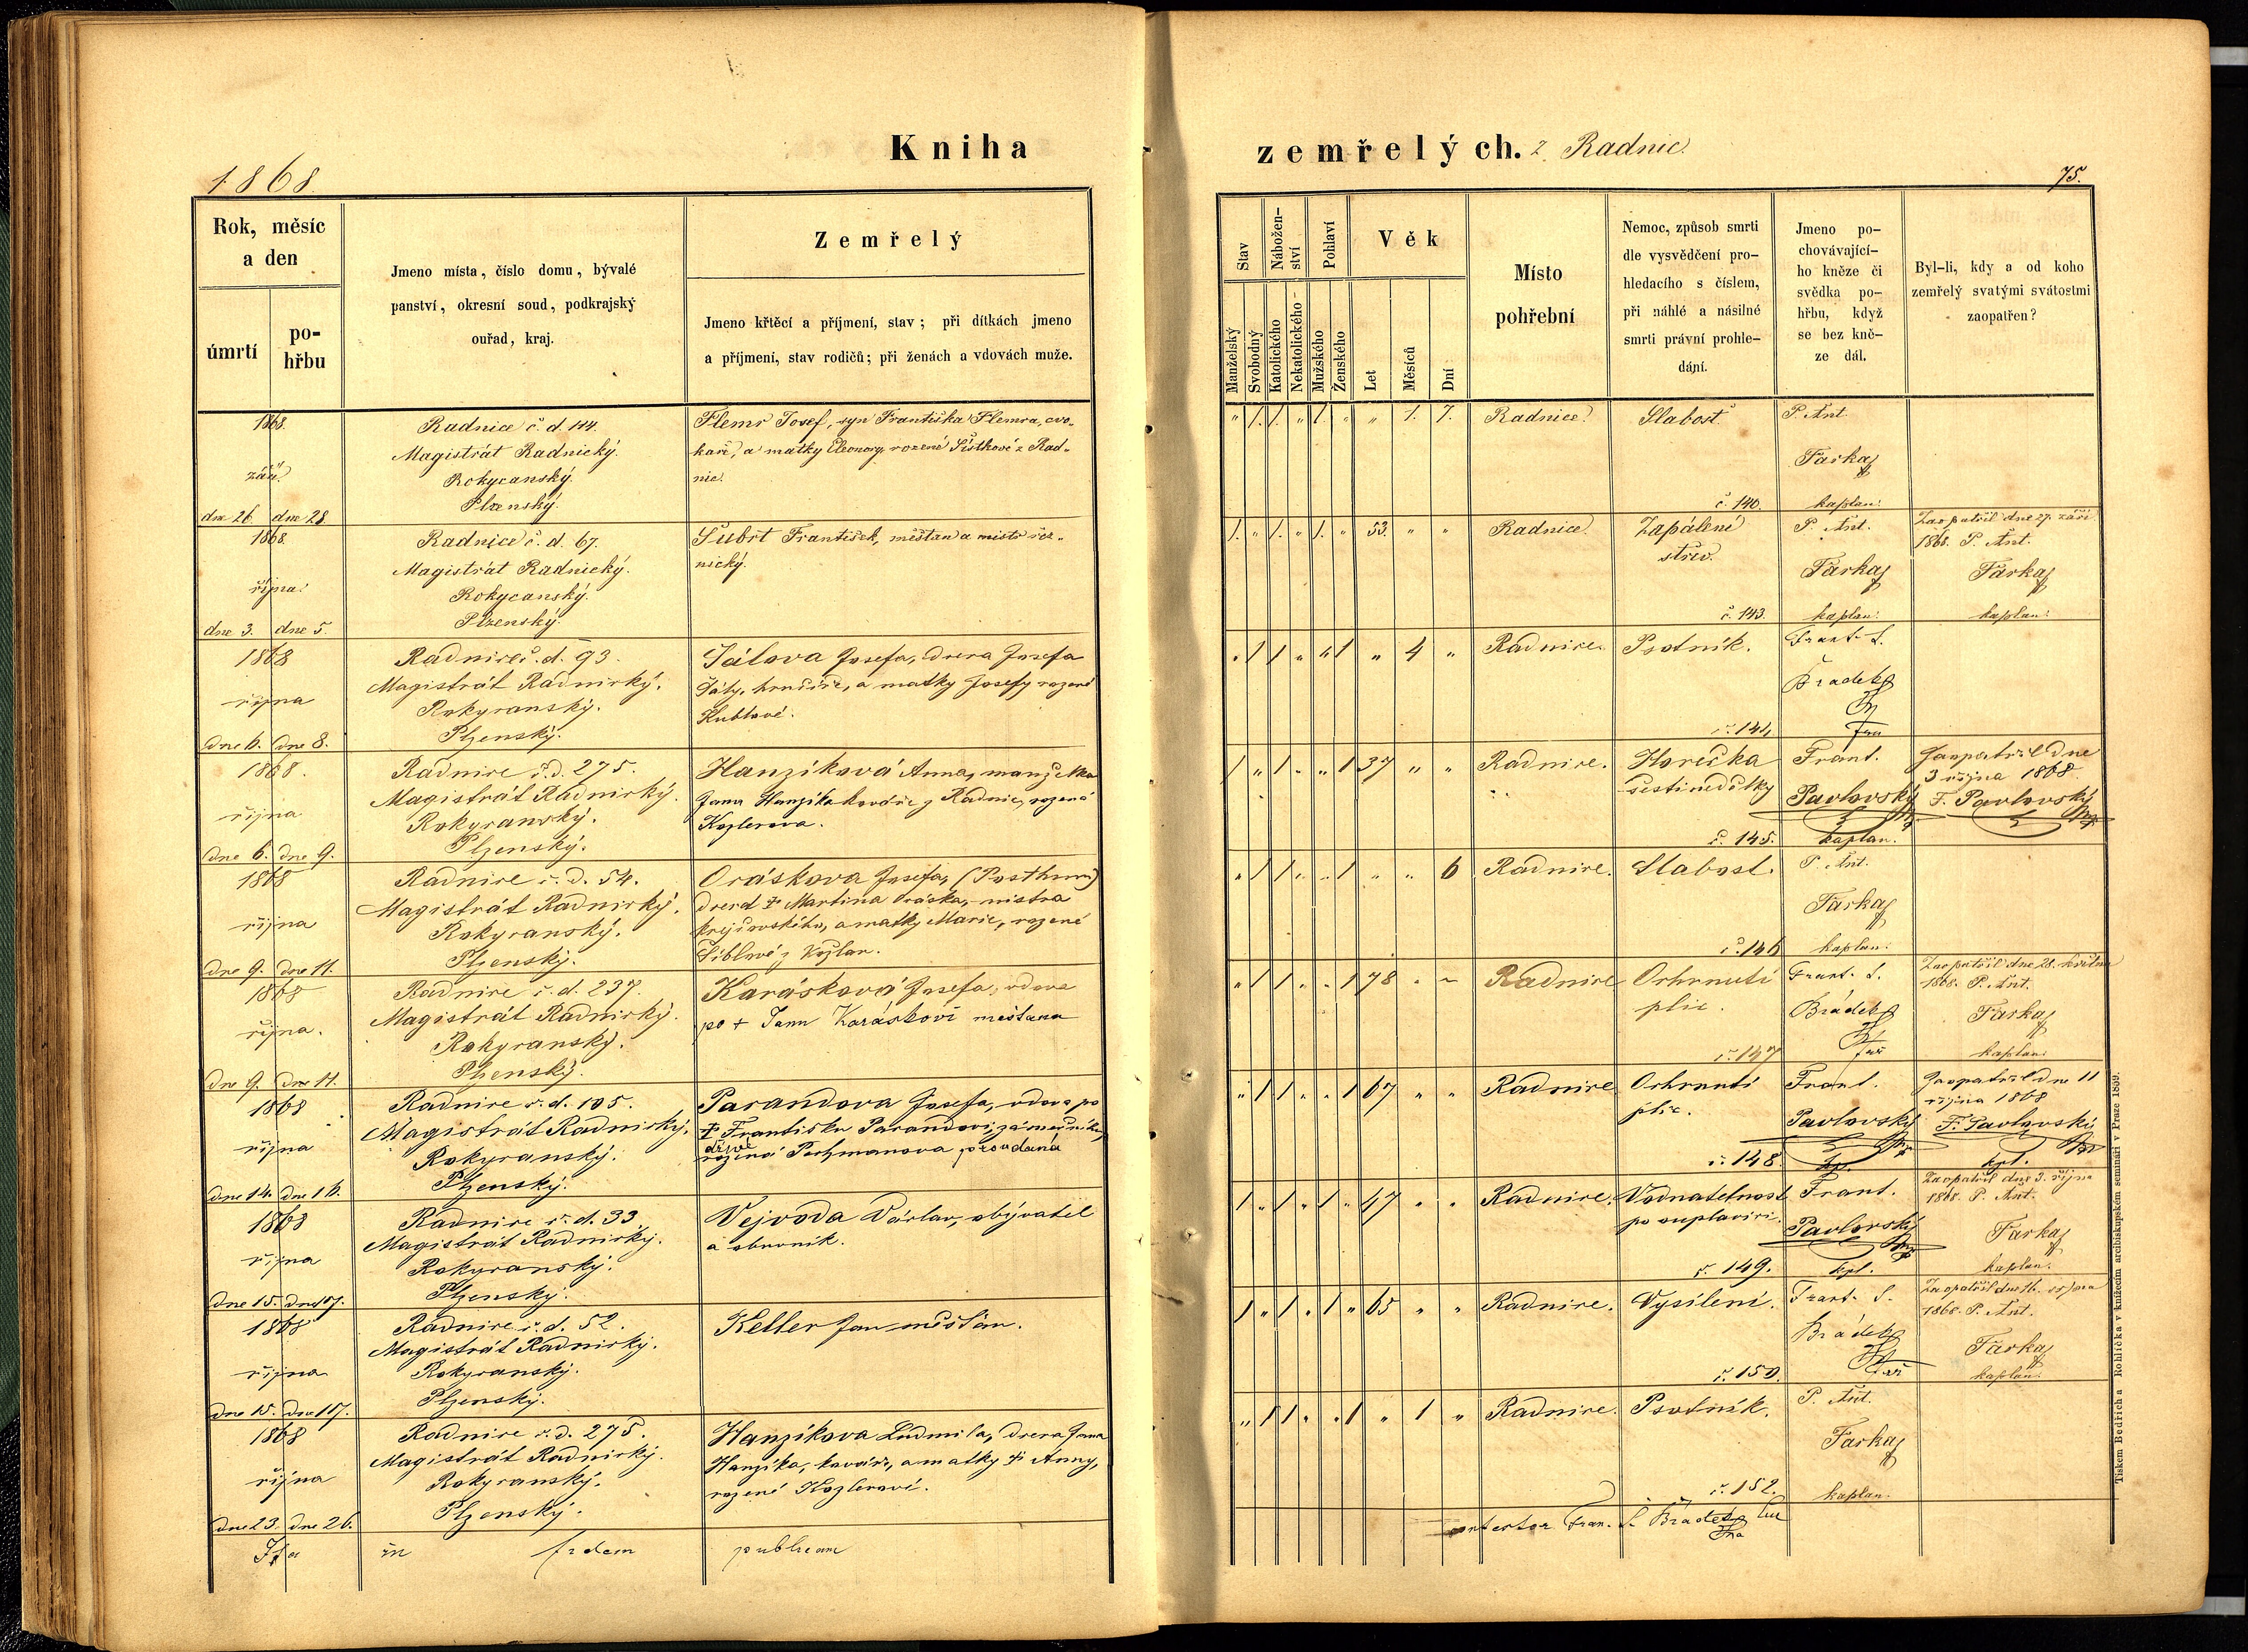 Kniha
zemřelých. z Radnic.
1868.
75.
Rok, měsíc
a den
úmrtí
po-
hřbu
Jmeno místa, číslo domu, bývalé
panství, okresní soud, podkrajský
ouřad, kraj.
Zemřelý
Jmeno křtěcí a příjmení, stav; při dítkách jmeno
a příjmení, stav rodičů; při ženách a vdovách muže.
Stav
Nábožen-
ství
Pohlaví
Věk
Manželský
Svobodný
Katolického
Nekatolického
Mužského
Ženského
Let
Měsíců
Dní
Místo
pohřební
Nemoc, způsob smrti
dle vysvědčení pro-
hledacího s číslem,
při náhlé a násilné
smrti právní prohle-
dání.
Jmeno po-
chovávající-
ho kněze či
svědka po-
hřbu, když
se bez kně-
ze dál.
Byl-li, kdy a od koho
zemřelý svatými svátostmi
zaopatřen?
1868.
září
dne 26. dne 28.
Radnice č. d. 114.
Magistrát Radnický.
Rokycanský.
Plzenský.
Flemr Josef, syn Františka Flemra, cvo-
kaře, a matky Eleonory rozené Šístkové z Rad-
nic.
" 1. 1. " 1. " " 1. 7. Radnice. Slabost č. 140.
P. Ant.
Farka
kaplan.
1868.
října.
dne 3. dne 5.
Radnice č. d. 67.
Magistrát Radnický.
Rokycanský.
Plzenský.
Šubrt František, měštan a mistr řez-
nický.
1. " 1. " 1. " 53. " " Radnice. Zapálení
střev.
č. 143.
P. Ant.
Farka
kaplan.
Zaopatřil dne 27. září
1868. P. Ant.
Farka
kaplan.
1868
října
dne 6. dne 8.
Radnice č. d. 93.
Magistrát Radnický.
Rokycanský.
Plzenský.
Josefa, dcera Josefa
a matky Josefy rozené
" 1 1 " " 1 " 4 " Radnice. Psotník.
Frant. S.
Bradetz
1868.
října
dne 6. dne 9.
Radnice č. d. 275.
Magistrát Radnický.
Rokycanský.
Plzenský.
Hanzíková Anna, manželka
Jana Hanzíka kováře z Radnic, rozená
Kozlerova.
1 " 1 " " 1 37 " " Radnice. Horečka
šestinedělky
č. 145.
Frant.
Pavlovský
kaplan.
Zaopatřil dne
3 října 1868.
F. Pavlovský
1868
října
dne 9. dne 11.
Radnice č. d. 54.
Magistrát Radnický.
Rokycanský.
Plzenský.
Oráskova Josefa, (Posthuma)
dcera † Martina Oráska, mistra
krejčovského, a matky Marie, rozené
z Kozlan.
" 1 1 " " 1 " " 6 Radnice. Slabost.
č. 146
P. Ant.
Farka
kaplan.
1868
října.
dne 9. dne 11.
Radnice č. d. 237.
Magistrát Radnický.
Rokycanský.
Plzenský.
Karásková Josefa, vdova
po † Janu Karáskovi měštanu
" 1 1 " " 1 78 " " Radnice Ochrnutí
plic.
č. 147
Frant. S.
Bradetz
far
Zaopatřil dne 28. května
1868. P. Ant.
Farka
kaplan.
1868
října
dne 14. dne 16.
Radnice č. d. 105.
Magistrát Radnický.
Rokycanský.
Plzenský.
Parandova Josefa, vdova po
† Františku Parandovi, zámečníku,
dříve
rozená Pachmanova provdaná
" 1 1 " " 1 67 " " Radnice Ochrnutí
plic.
č. 148.
Frant.
Pavlovský
kp.
Zaopatřil dne 11
října 1868
F. Pavlovský
kpl.
1868
října
dne 15. dne 17.
Radnice č. d. 33.
Magistrát Radnický.
Rokycanský.
Plzenský.
Vejvoda Václav, obývatel
a obuvník.
1 " 1 " 1 " 47 " " Radnice. Vodnatelnost
po
č. 149.
Frant.
Pavlovský
kpl.
Zaopatřil dne 3. října
1868. P. Ant.
Farka
kaplan.
1868
října
dne 15. dne 17.
Radnice č. d. 52.
Magistrát Radnický.
Rokycanský.
Plzenský.
Keller Jan měšťan.
1 " 1 " 1 " 65 " " Radnice. Vysílení.
č. 150.
Frant. S.
Bradetz
far
Zaopatřil dne 16. října
1868. P. Ant.
Farka
kaplan.
1868
října
dne 23. dne 26.
Radnice č. d. 275.
Magistrát Radnický.
Rokycanský.
Plzenský.
Hanzíkova Ludmila, dcera Jana
Hanzíka, kováře, a matky † Anny,
rozené Kozlerovi.
" 1 1 " " 1 " 1 " Radnice. Psotník.
č. 152.
P. Ant.
Farka
kaplan.
Ita in fidem publicam
Fran. S. Bradetz
Tiskem Bedřicha Rohlíčka v knížecím arcibiskupském semináři v Praze 1859.